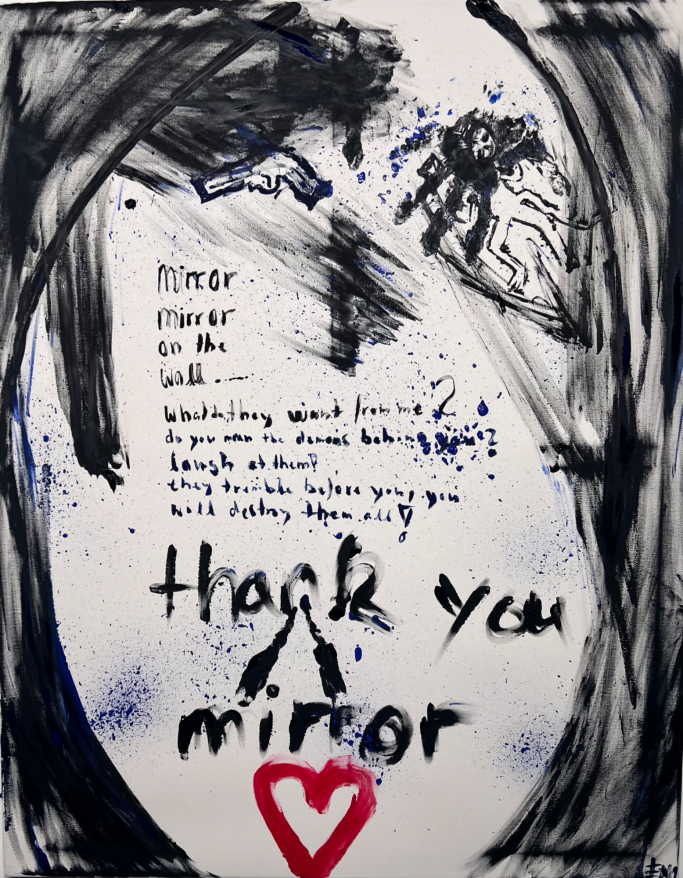 mirror
mirror
on the
wall....
what do they want from me?
do you mean the demons behind you?
laugh at them!
they tremble before you, you
will destroy them all!
thank you
mirror